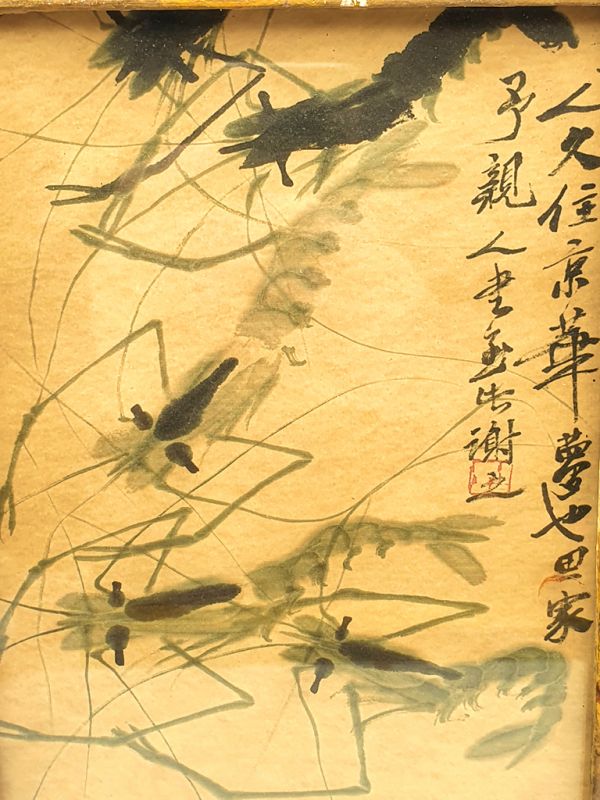 人久住京華夢也思家
予親人書謝之